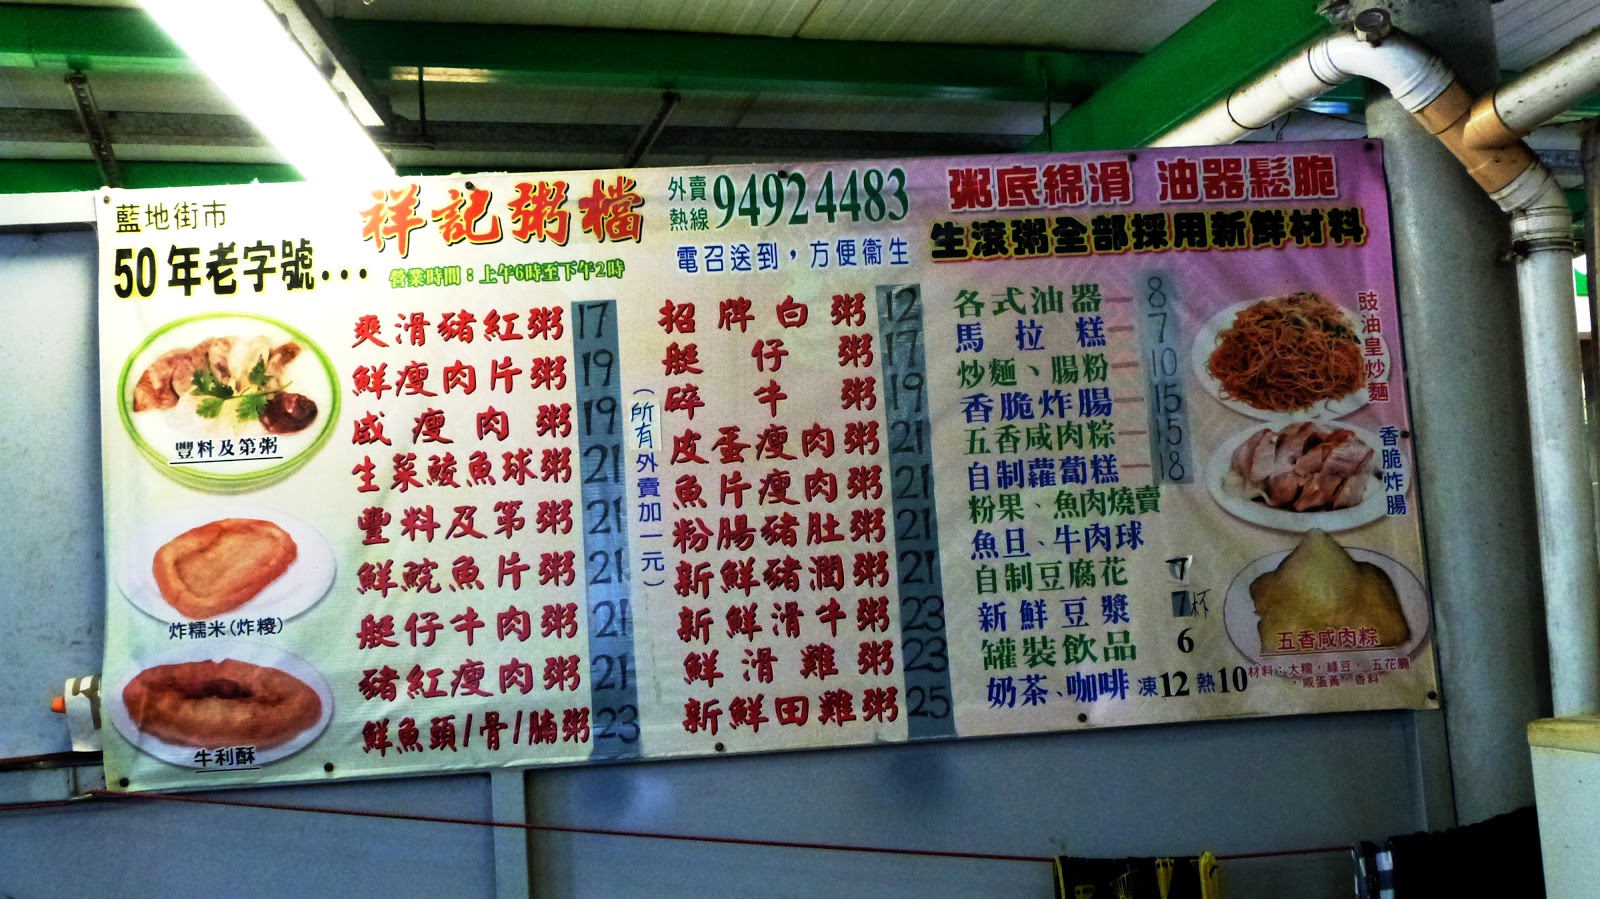 藍地街市
50年老字號...
祥記粥檔
營業時間：上午6時至下午2時
外賣熱線 94924483
電召送到，方便衛生
粥底綿滑 油器鬆脆
生滾粥全部採用新鮮材料
豐料及第粥
炸糯米(炸糉)
牛利酥
爽滑豬紅粥 17
鮮瘦肉片粥 19
咸瘦肉粥 19
生菜鯪魚球粥 21
豐料及第粥 21
鮮鯇魚片粥 21
艇仔牛肉粥 21
豬紅瘦肉粥 21
鮮魚頭/骨/腩粥 23
(所有外賣加一元)
招牌白粥 12
艇仔粥 17
碎牛粥 19
皮蛋瘦肉粥 21
魚片瘦肉粥 21
粉腸豬肚粥 21
新鮮豬潤粥 21
新鮮滑牛粥 23
鮮滑雞粥 23
新鮮田雞粥 25
各式油器 8
馬拉糕 7
炒麵、腸粉 10
香脆炸腸 15
五香咸肉粽 15
自制蘿蔔糕 18
粉果、魚肉燒賣
魚旦、牛肉球
自制豆腐花 7
新鮮豆漿 7杯
罐裝飲品 6
奶茶、咖啡 凍12 熱10
豉油皇炒麵
香脆炸腸
五香咸肉粽
材料：大糯，綠豆，五花腩
，咸蛋黃，香料